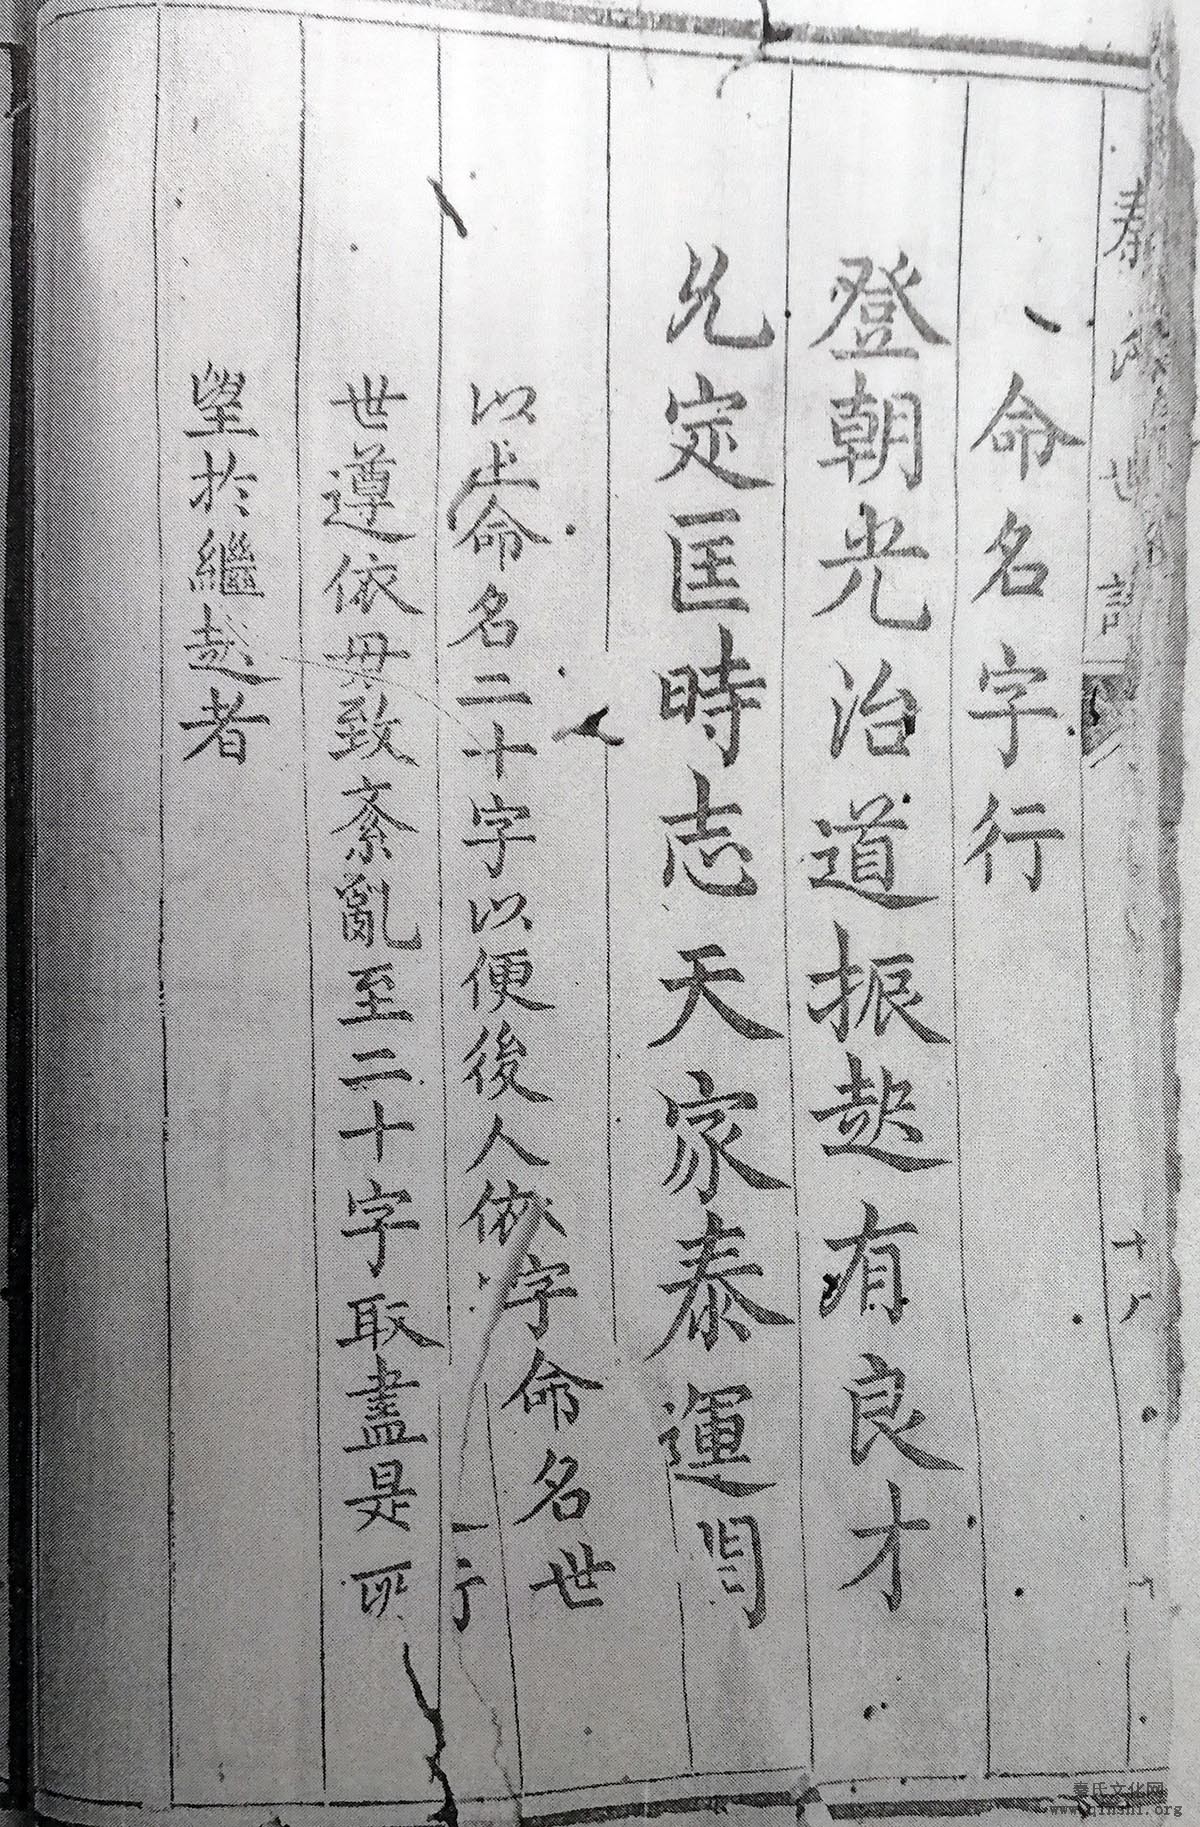 秦氏世言
十八
一命名字行
登朝光治道振起有良才
允定匡時志天家泰運開
以上命名二十字以便後人依字命名世
世遵依毋致紊亂至二十字取盡是所
望於繼起者
秦氏文化网
www.qinshi.org